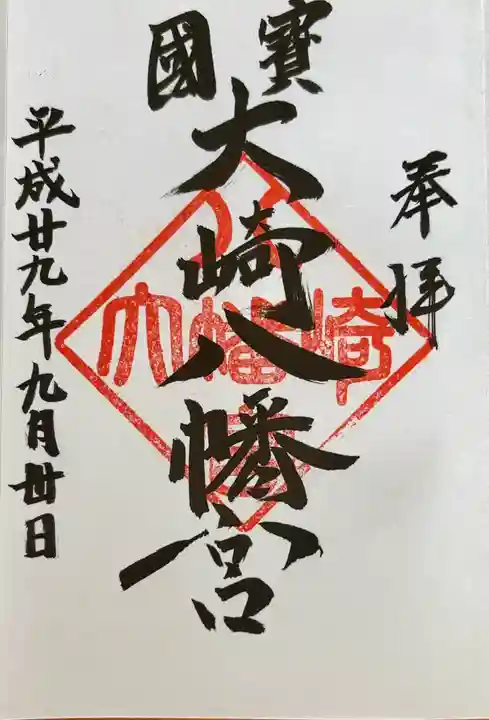 奉拝
國寶
大崎八幡宮
平成廿九年九月丗日
八
大幡崎
宮